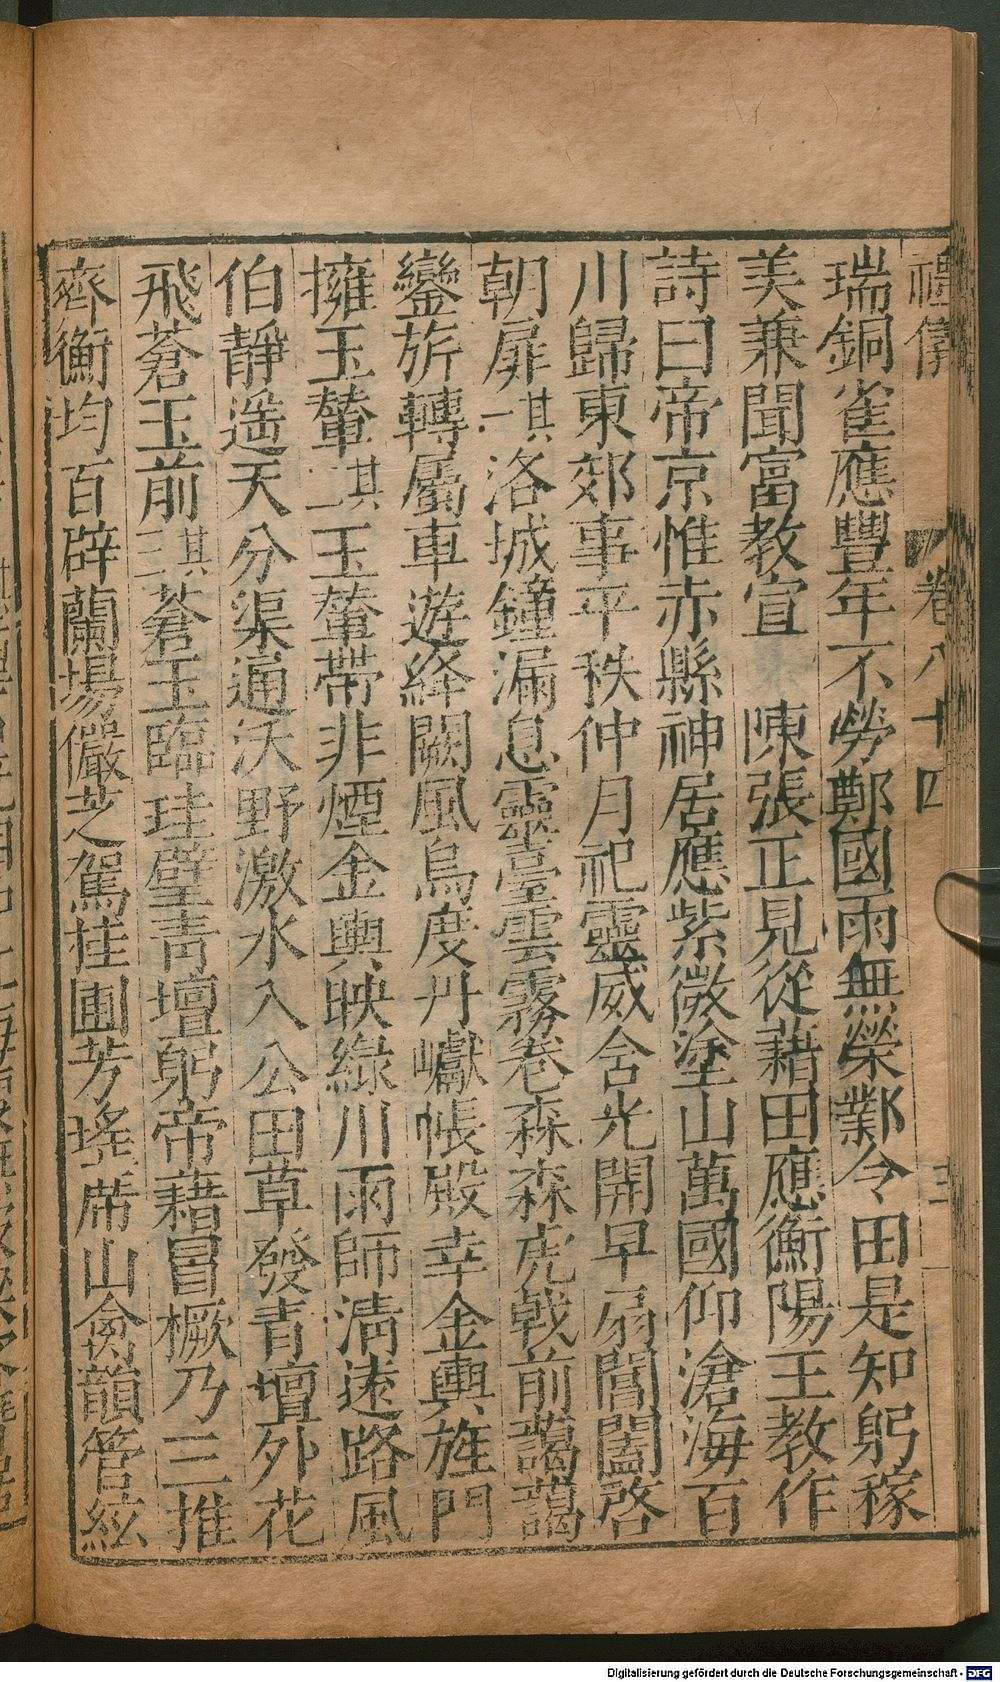 禮儀 卷八十四
瑞銅雀應豐年不勞鄭國雨無榮鄴令田是知躬稼
美兼聞富教宣 陳張正見從藉田應衡陽王教作
詩曰帝京惟赤縣神居應紫微塗山萬國仰滄海百
川歸東郊事平秩仲月祀靈威含光開早扇閶闔啓
朝扉其一洛城鐘漏息靈臺雲霧卷森森虎戟前藹藹
鑾旂轉屬車遊絳闕風烏度丹巘帳殿幸金輿旌門
擁玉輦其二玉輦帶非煙金輿映綠川雨師淸遠路風
伯靜遥天分渠通沃野激水入公田草發青壇外花
飛蒼玉前其三蒼玉臨珪璧靑壇躬帝藉冒橛乃三推
齊衡均百辟蘭場儼芝駕桂圃芳瑤席山禽韻管絃
Digitalisierung gefördert durch die Deutsche Forschungsgemeinschaft - DFG